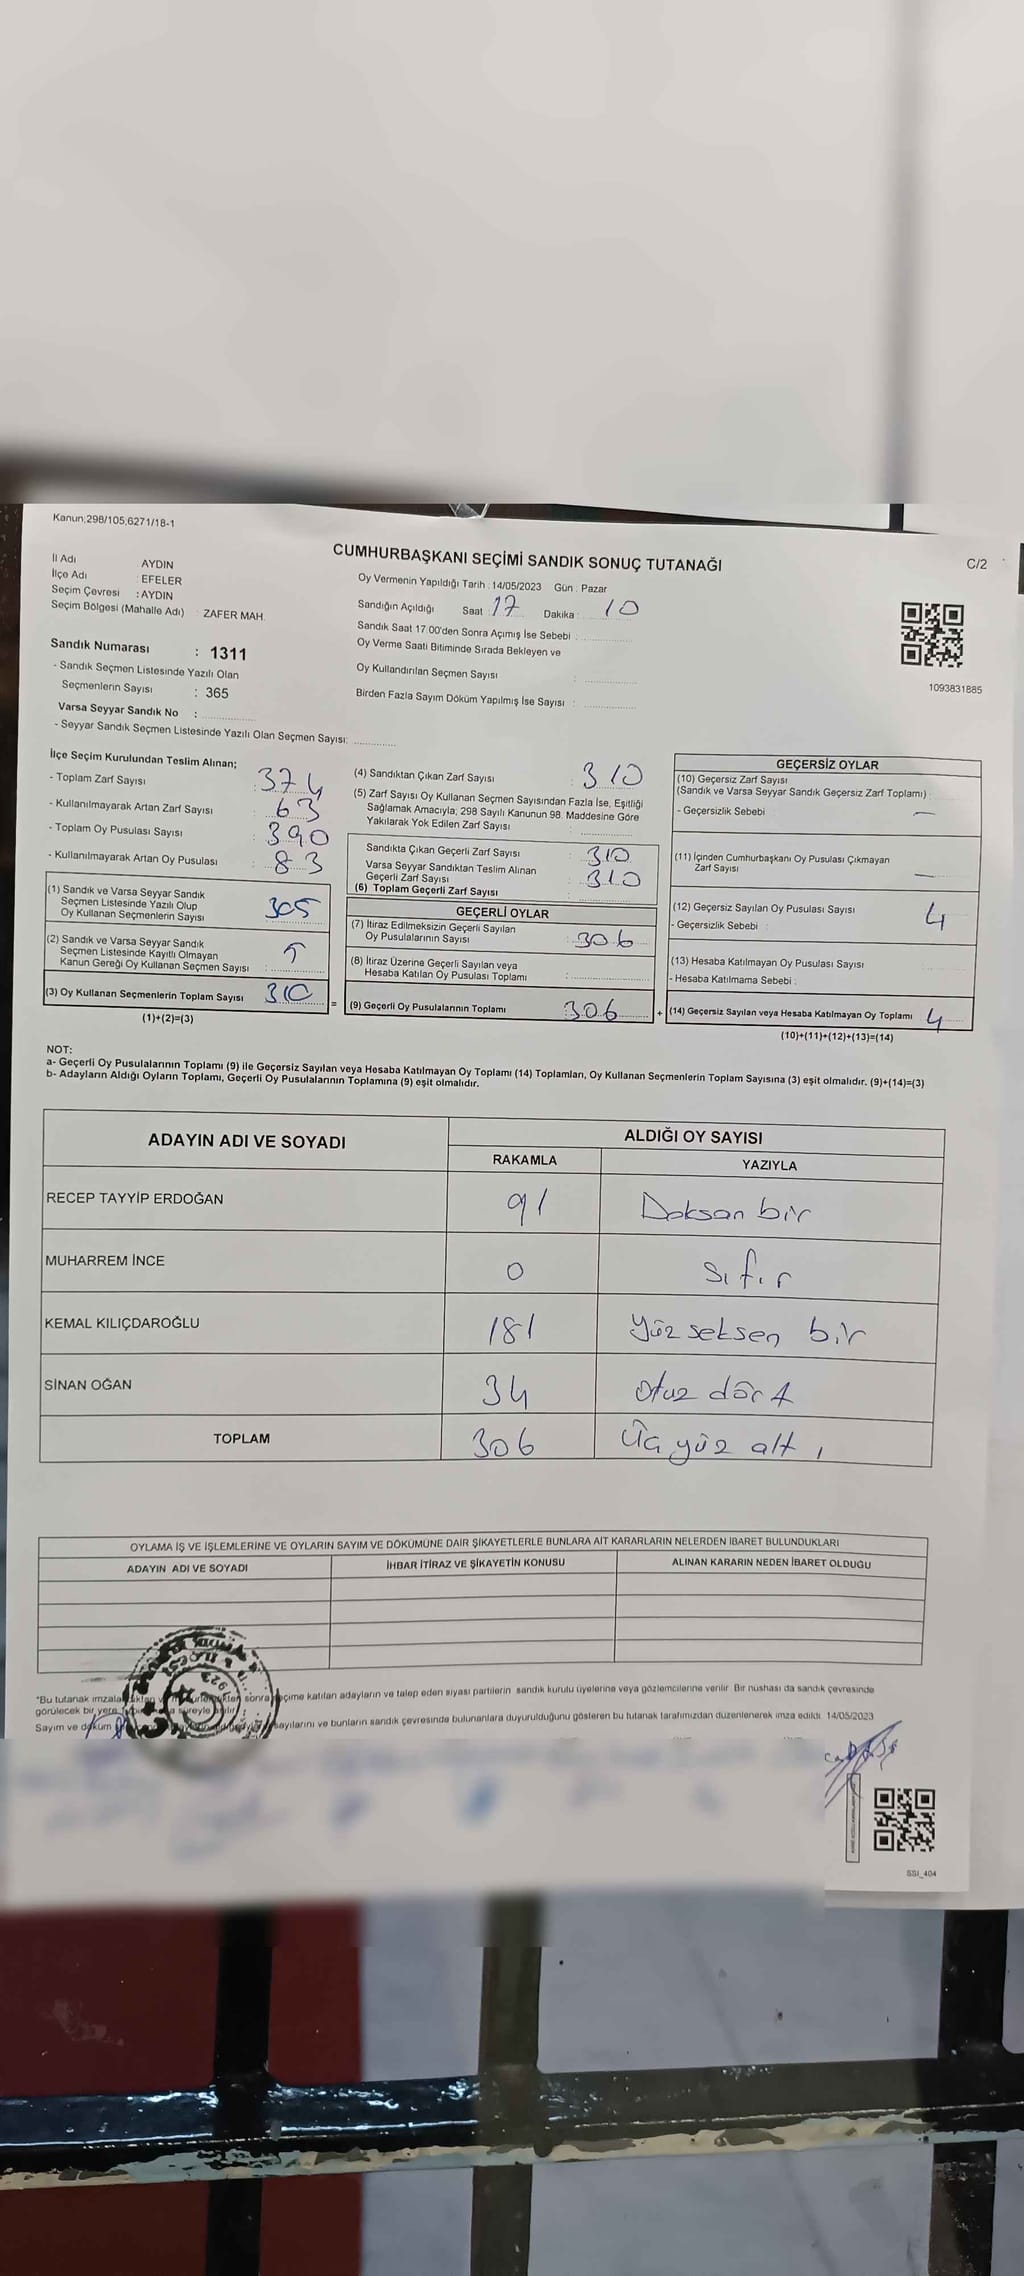 Kanun;298/105,6271/18-1
CUMHURBAŞKANI SEÇİMİ SANDIK SONUÇ TUTANAĞI
C/2
İl Adı AYDIN
İlçe Adı : EFELER
Seçim Çevresi : AYDIN
Seçim Bölgesi (Mahalle Adı) : ZAFER MAH.
Oy Vermenin Yapıldığı Tarih : 14/05/2023 Gün : Pazar
Sandığın Açıldığı Saat : 17 Dakika : 10
Sandık Saat 17:00'den Sonra Açımış İse Sebebi :
Oy Verme Saati Bitiminde Sırada Bekleyen ve
Oy Kullandırılan Seçmen Sayısı :
Birden Fazla Sayım Döküm Yapılmış İse Sayısı :
1093831885
Sandık Numarası : 1311
- Sandık Seçmen Listesinde Yazılı Olan
Seçmenlerin Sayısı : 365
Varsa Seyyar Sandık No :
- Seyyar Sandık Seçmen Listesinde Yazılı Olan Seçmen Sayısı:
İlçe Seçim Kurulundan Teslim Alınan;
- Toplam Zarf Sayısı : 374
- Kullanılmayarak Artan Zarf Sayısı : 63
- Toplam Oy Pusulası Sayısı : 390
- Kullanılmayarak Artan Oy Pusulası : 83
(1) Sandık ve Varsa Seyyar Sandık
Seçmen Listesinde Yazılı Olup
Oy Kullanan Seçmenlerin Sayısı 305
(2) Sandık ve Varsa Seyyar Sandık
Seçmen Listesinde Kayıtlı Olmayan
Kanun Gereği Oy Kullanan Seçmen Sayısı : 5
(3) Oy Kullanan Seçmenlerin Toplam Sayısı 310
(1)+(2)=(3)
(4) Sandıktan Çıkan Zarf Sayısı : 310
(5) Zarf Sayısı Oy Kullanan Seçmen Sayısından Fazla İse, Eşitliği
Sağlamak Amacıyla; 298 Sayılı Kanunun 98. Maddesine Göre
Yakılarak Yok Edilen Zarf Sayısı :
Sandıkta Çıkan Geçerli Zarf Sayısı : 310
Varsa Seyyar Sandıktan Teslim Alınan
Geçerli Zarf Sayısı : 310
(6) Toplam Geçerli Zarf Sayısı :
GEÇERLİ OYLAR
(7) İtiraz Edilmeksizin Geçerli Sayılan
Oy Pusulalarının Sayısı : 306
(8) İtiraz Üzerine Geçerli Sayılan veya
Hesaba Katılan Oy Pusulası Toplamı :
= (9) Geçerli Oy Pusulalarının Toplamı : 306
GEÇERSİZ OYLAR
(10) Geçersiz Zarf Sayısı
(Sandık ve Varsa Seyyar Sandık Geçersiz Zarf Toplamı) :
- Geçersizlik Sebebi : —
(11) İçinden Cumhurbaşkanı Oy Pusulası Çıkmayan
Zarf Sayısı : —
(12) Geçersiz Sayılan Oy Pusulası Sayısı : 4
- Geçersizlik Sebebi :
(13) Hesaba Katılmayan Oy Pusulası Sayısı :
- Hesaba Katılmama Sebebi :
+ (14) Geçersiz Sayılan veya Hesaba Katılmayan Oy Toplamı : 4
(10)+(11)+(12)+(13)=(14)
NOT:
a- Geçerli Oy Pusulalarının Toplamı (9) ile Geçersiz Sayılan veya Hesaba Katılmayan Oy Toplamı (14) Toplamları, Oy Kullanan Seçmenlerin Toplam Sayısına (3) eşit olmalıdır. (9)+(14)=(3)
b- Adayların Aldığı Oyların Toplamı, Geçerli Oy Pusulalarının Toplamına (9) eşit olmalıdır.
ADAYIN ADI VE SOYADI
ALDIĞI OY SAYISI
RAKAMLA YAZIYLA
RECEP TAYYİP ERDOĞAN 91 Doksan bir
MUHARREM İNCE 0 sıfır
KEMAL KILIÇDAROĞLU 181 Yüz seksen bir
SİNAN OĞAN 34 otuz dört
TOPLAM 306 Üç yüz altı
OYLAMA İŞ VE İŞLEMLERİNE VE OYLARIN SAYIM VE DÖKÜMÜNE DAİR ŞİKAYETLERLE BUNLARA AİT KARARLARIN NELERDEN İBARET BULUNDUKLARI
ADAYIN ADI VE SOYADI İHBAR İTİRAZ VE ŞİKAYETİN KONUSU ALINAN KARARIN NEDEN İBARET OLDUĞU
1923
*Bu tutanak sonra seçime katılan adayların ve talep eden siyasi partilerin sandık kurulu üyelerine veya gözlemcilerine verilir. Bir nüshası da sandık çevresinde
görülecek bir yere süreyle
Sayım ve döküm sayılarını ve bunların sandık çevresinde bulunanlara duyurulduğunu gösteren bu tutanak tarafımızdan düzenlenerek imza edildi. 14/05/2023
SSI_404